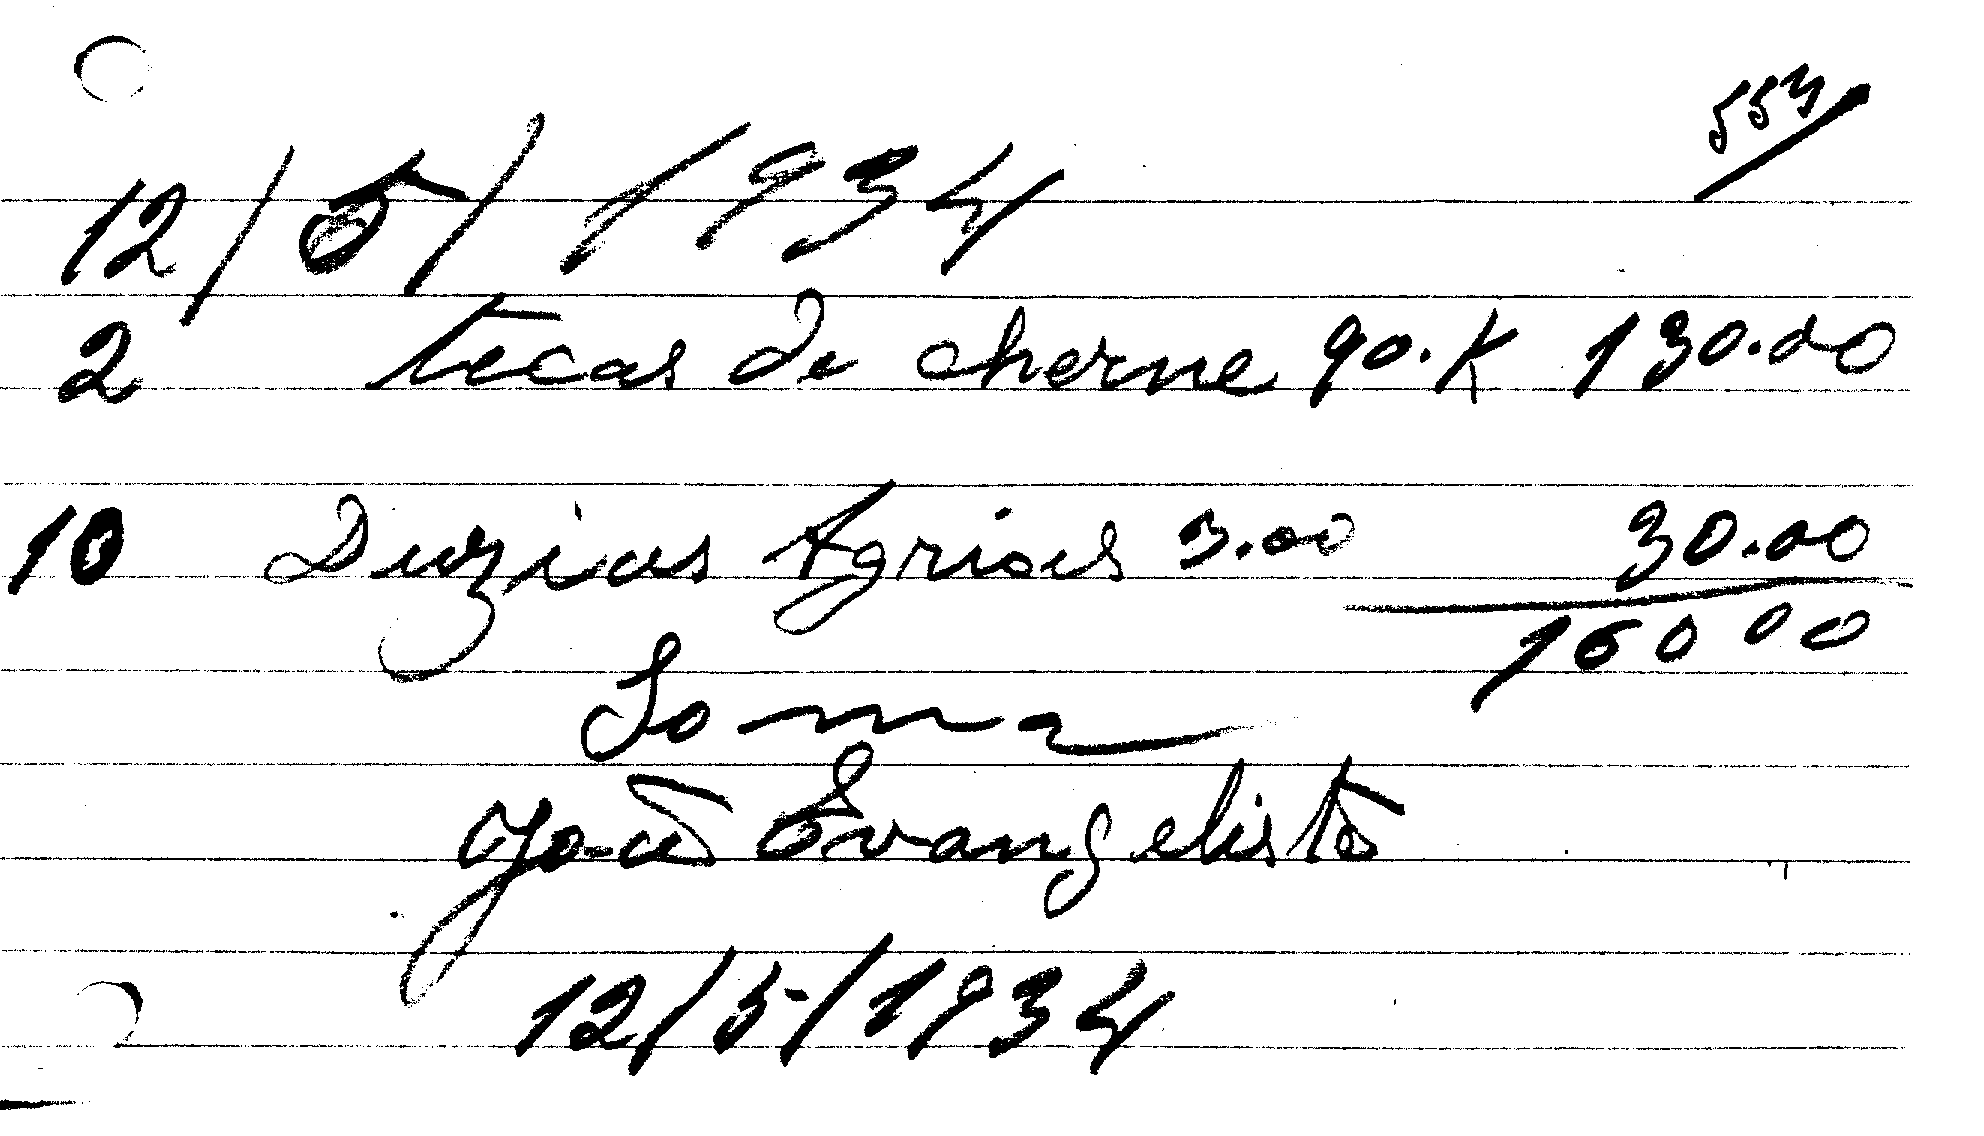 554
12/5/1934
2 tecas de cherne 90.K 130.00
10 Duzias Agrioes 3.00 30.00
160 00
Soma
João Evangelista
12/5/1934